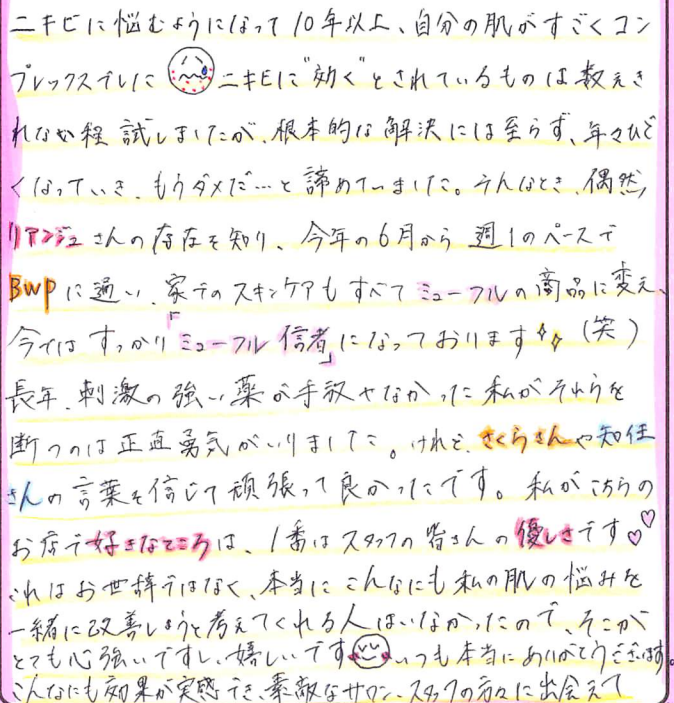 ニキビに悩むようになって10年以上、自分の肌がすごくコン
プレックスでした ニキビに"効く"とされているものは数えき
れない程 試しましたが、根本的な解決には至らず、年々ひど
くなっていき、もうダメだ…と諦めていました。そんなとき、偶然
リアンジュさんの存在を知り、今年の6月から 週1のペースで
BWPに通い、家でのスキンケアもすべてミューフルの商品に変え、
今ではすっかり「ミューフル信者」になっております(笑)
長年、刺激の強い薬が手放せなかった私がそれらを
断つのは正直勇気がいりました。けれど、さくらさんや知佳
さんの言葉を信じて頑張って良かったです。私がこちらの
お店で好きなところは、1番はスタッフの皆さんの優しさです♡♡
これはお世辞ではなく、本当にこんなにも私の肌の悩みを
一緒に改善しようと考えてくれる人はいなかったので、そこが
とても心強いですし、嬉しいです いつも本当にありがとうございます。
こんなにも効果が実感でき、素敵なサロン、スタッフの方々に出会えて